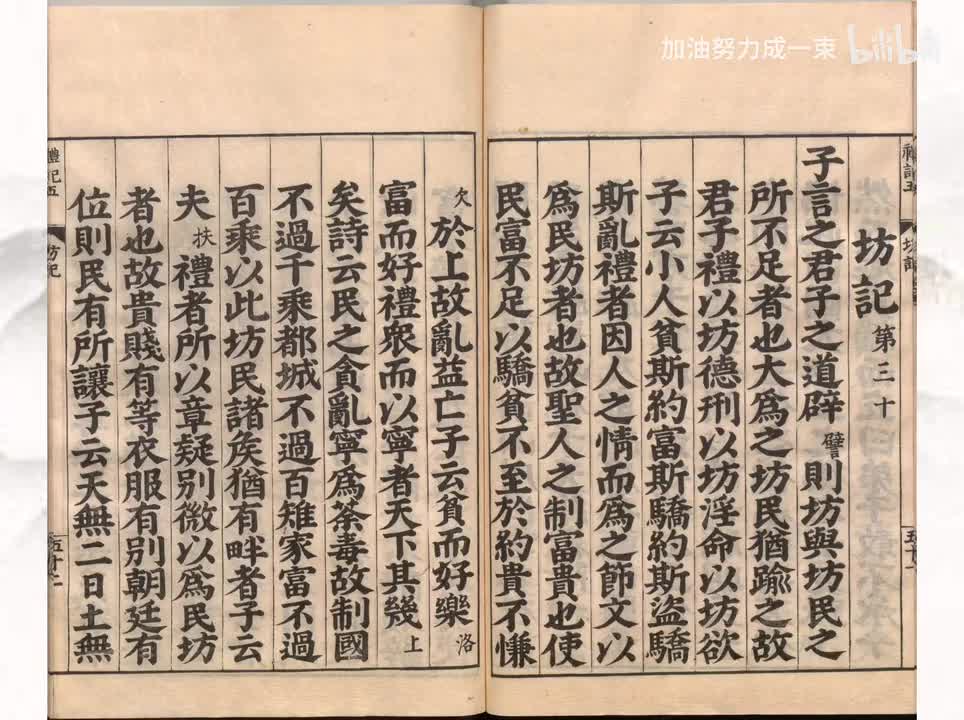 加油努力成一束 bilibili
坊記第三十
子言之君子之道辟譬則坊與坊民之
所不足者也大爲之坊民猶踰之故
君子禮以坊德刑以坊淫命以坊欲
子云小人貧斯約富斯驕約斯盜驕
斯亂禮者因人之情而爲之節文以
爲民坊者也故聖人之制富貴也使
民富不足以驕貧不至於約貴不慊
欠於上故亂益亡子云貧而好樂洛
富而好禮衆而以寧者天下其幾上
矣詩云民之貪亂寧爲荼毒故制國
不過千乘都城不過百雉家富不過
百乘以此坊民諸矦猶有畔者子云
夫扶禮者所以章疑别微以爲民坊
者也故貴賤有等衣服有别朝廷有
位則民有所讓子云天無二日土無
禮記五
坊記